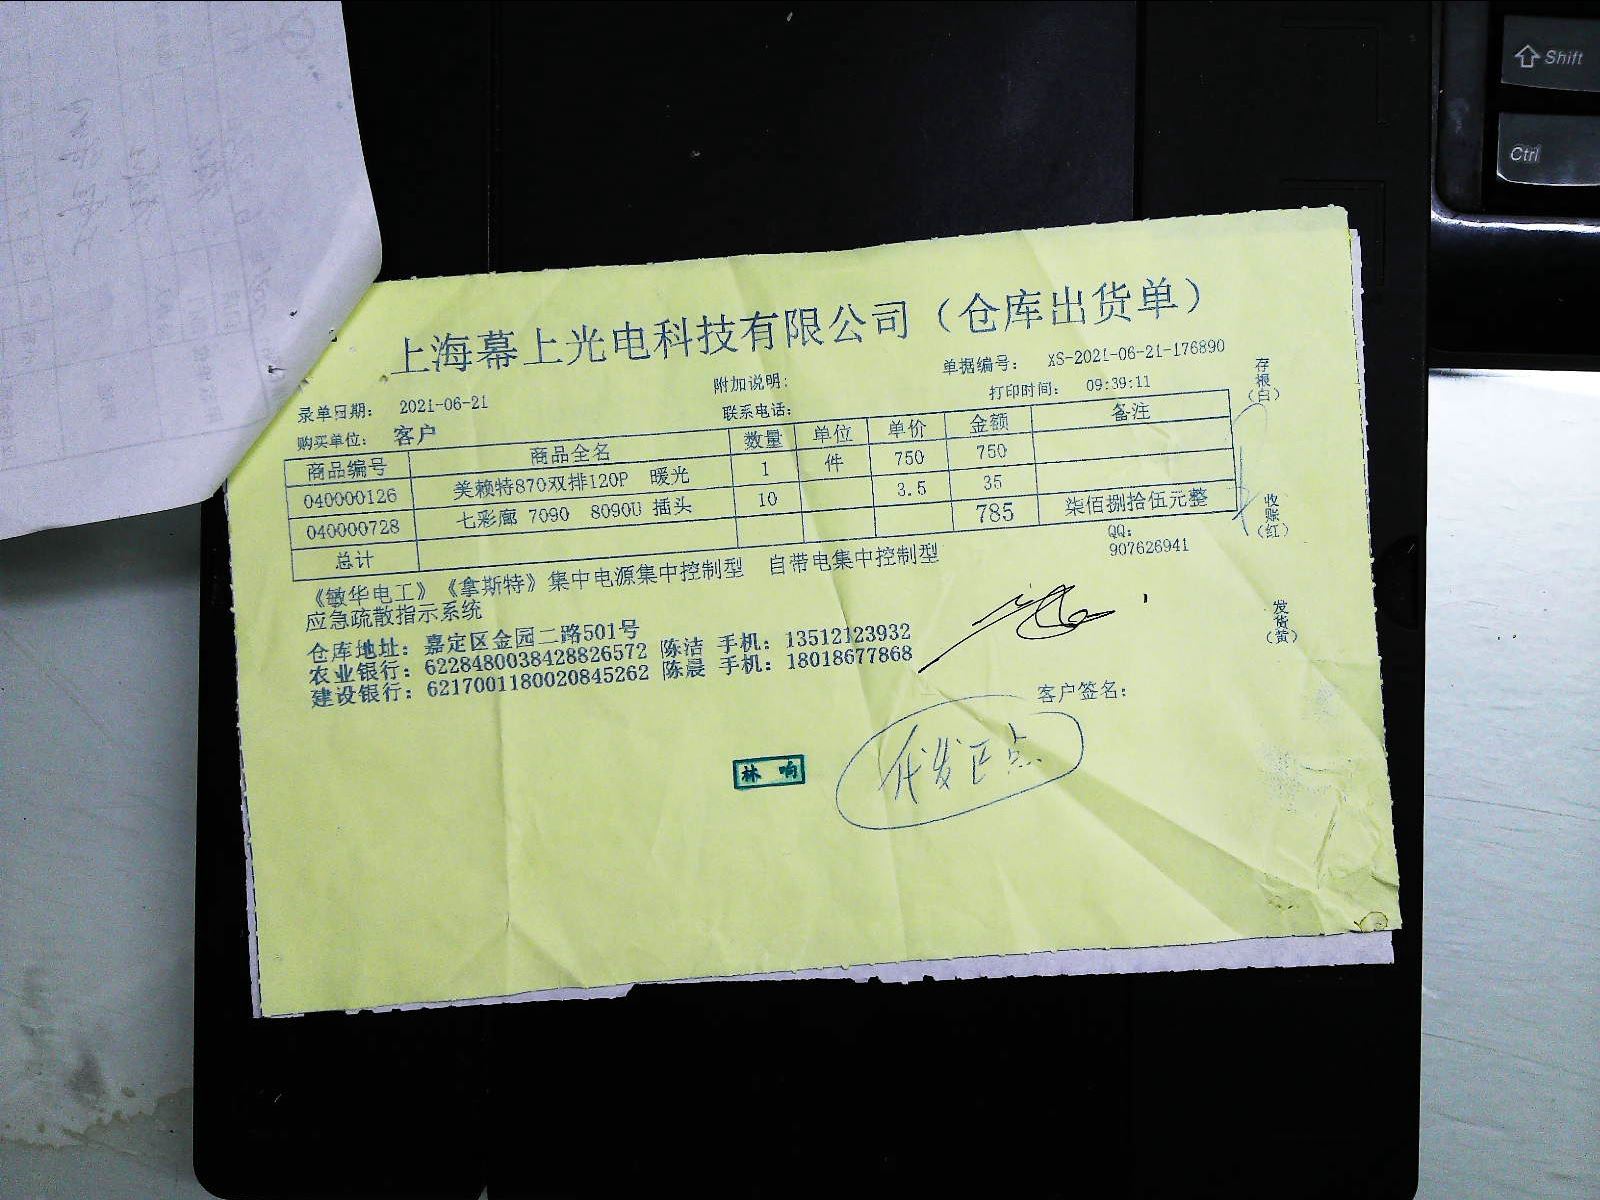 上海幕上光电科技有限公司（仓库出货单）
附加说明： 单据编号： XS-2021-06-21-176890
录单日期： 2021-06-21 联系电话： 打印时间： 09:39:11
购买单位： 客户
商品编号 商品全名 数量 单位 单价 金额 备注
040000126 美赖特870双排120P 暖光 1 件 750 750
040000728 七彩廊 7090 8090U 插头 10 3.5 35
总计 785 柒佰捌拾伍元整
《敏华电工》《拿斯特》集中电源集中控制型 自带电集中控制型
QQ：
907626941
应急疏散指示系统
仓库地址：嘉定区金园二路501号
农业银行：6228480038428826572 陈洁 手机：13512123932
建设银行：6217001180020845262 陈晨 手机：18018677868
客户签名：
林 响
代发正点
存根（白）
收账（红）
发货（黄）
Shift
Ctrl